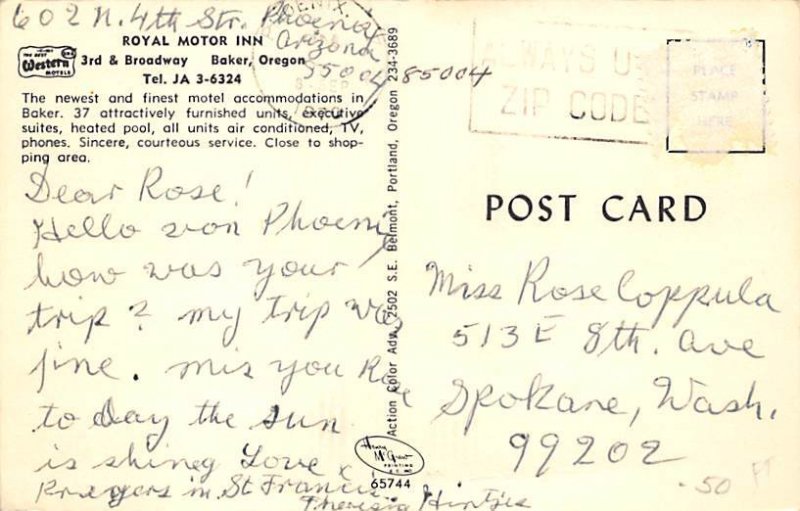 602 N. 4th Str. Phoenix
Arizona
55004 85004
ROYAL MOTOR INN
Western
MOTELS
3rd & Broadway Baker, Oregon
Tel. JA 3-6324
The newest and finest motel accommodations in
Baker. 37 attractively furnished units, executive
suites, heated pool, all units air conditioned, TV,
phones. Sincere, courteous service. Close to shop-
ping area.
Dear Rose!
Hello von Phoenix
how was your
trip? my trip was
fine. mis you Rose
to day the sun
is shineg Love &
Praegers in St Francis
Theresia Hintjes
Action Color Adv. 2502 S.E. Belmont, Portland, Oregon 234-3689
Henry McGrew
PRINTING
65744
ALWAYS U
ZIP CODE
PLACE
STAMP
HERE
POST CARD
Miss Rose Coppula
513 E 8th. ave
Spokane, Wash.
99202
.50